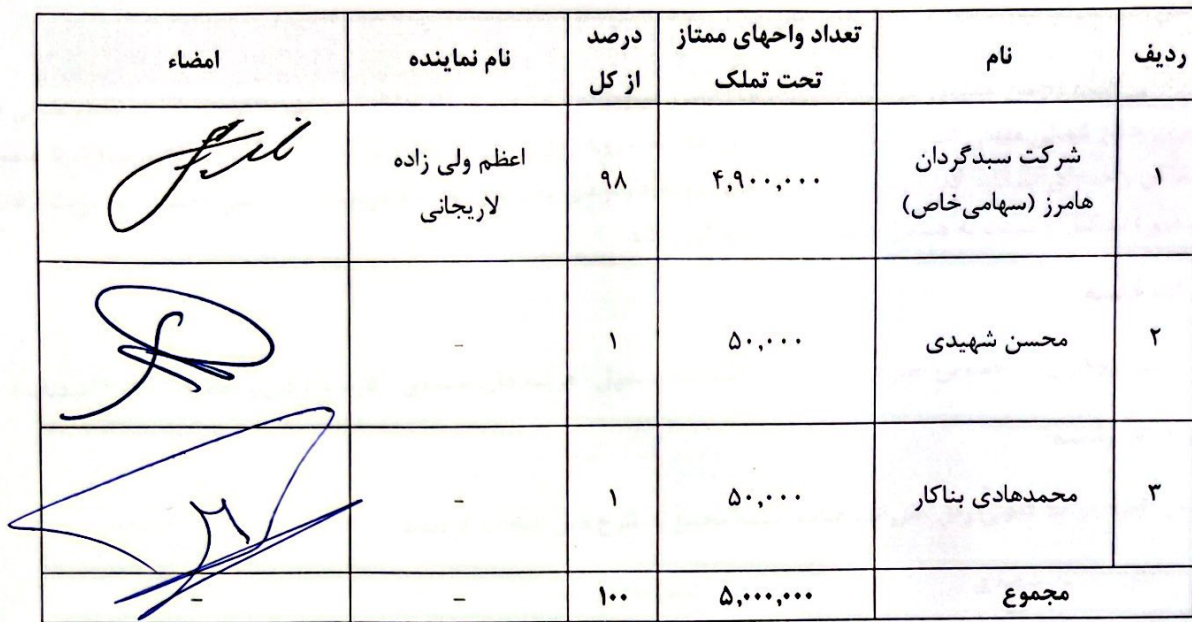 ردیف | نام | تعداد واحهای ممتاز تحت تملک | درصد از کل | نام نماینده | امضاء
۱ | شرکت سبدگردان هامرز (سهامی‌خاص) | ۴,۹۰۰,۰۰۰ | ۹۸ | اعظم ولی زاده لاریجانی |
۲ | محسن شهیدی | ۵۰,۰۰۰ | ۱ | - |
۳ | محمدهادی بناکار | ۵۰,۰۰۰ | ۱ | - |
مجموع | ۵,۰۰۰,۰۰۰ | ۱۰۰ | - | -